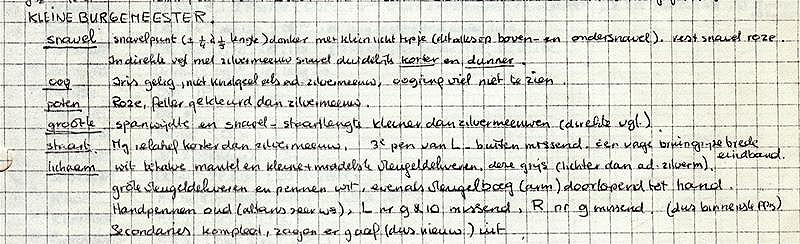 KLEINE BURGEMEESTER.
snavel snavelpunt (± ¼ à ⅓ lengte) donker met klein licht topje (dit alles op boven- en ondersnavel). rest snavel roze.
In direkte vgl met zilvermeeuw snavel duidelijk korter en dunner.
oog Iris gelig, niet knalgeel als ad. zilvermeeuw, oogring viel niet te zien.
poten Roze, feller gekleurd dan zilvermeeuw.
grootte spanwijdte en snavel-staartlengte kleiner dan zilvermeeuwen (direkte vgl.)
staart Mg relatief korter dan zilvermeeuw, 3e pen van L-buiten missend. Een vage bruingrijze brede eindband.
lichaam wit behalve mantel en kleine + middelste vleugeldekveren, deze grijs (lichter dan ad. zilverm),
grote vleugeldekveren en pennen wit, evenals vleugelboeg (arm) doorlopend tot hand.
Handpennen oud (althans zeer wit), L nr 9 & 10 missend, R nr 9 missend. (dus binnenste pp's)
Secondaries kompleet, zagen er gaaf (dus nieuw) uit.